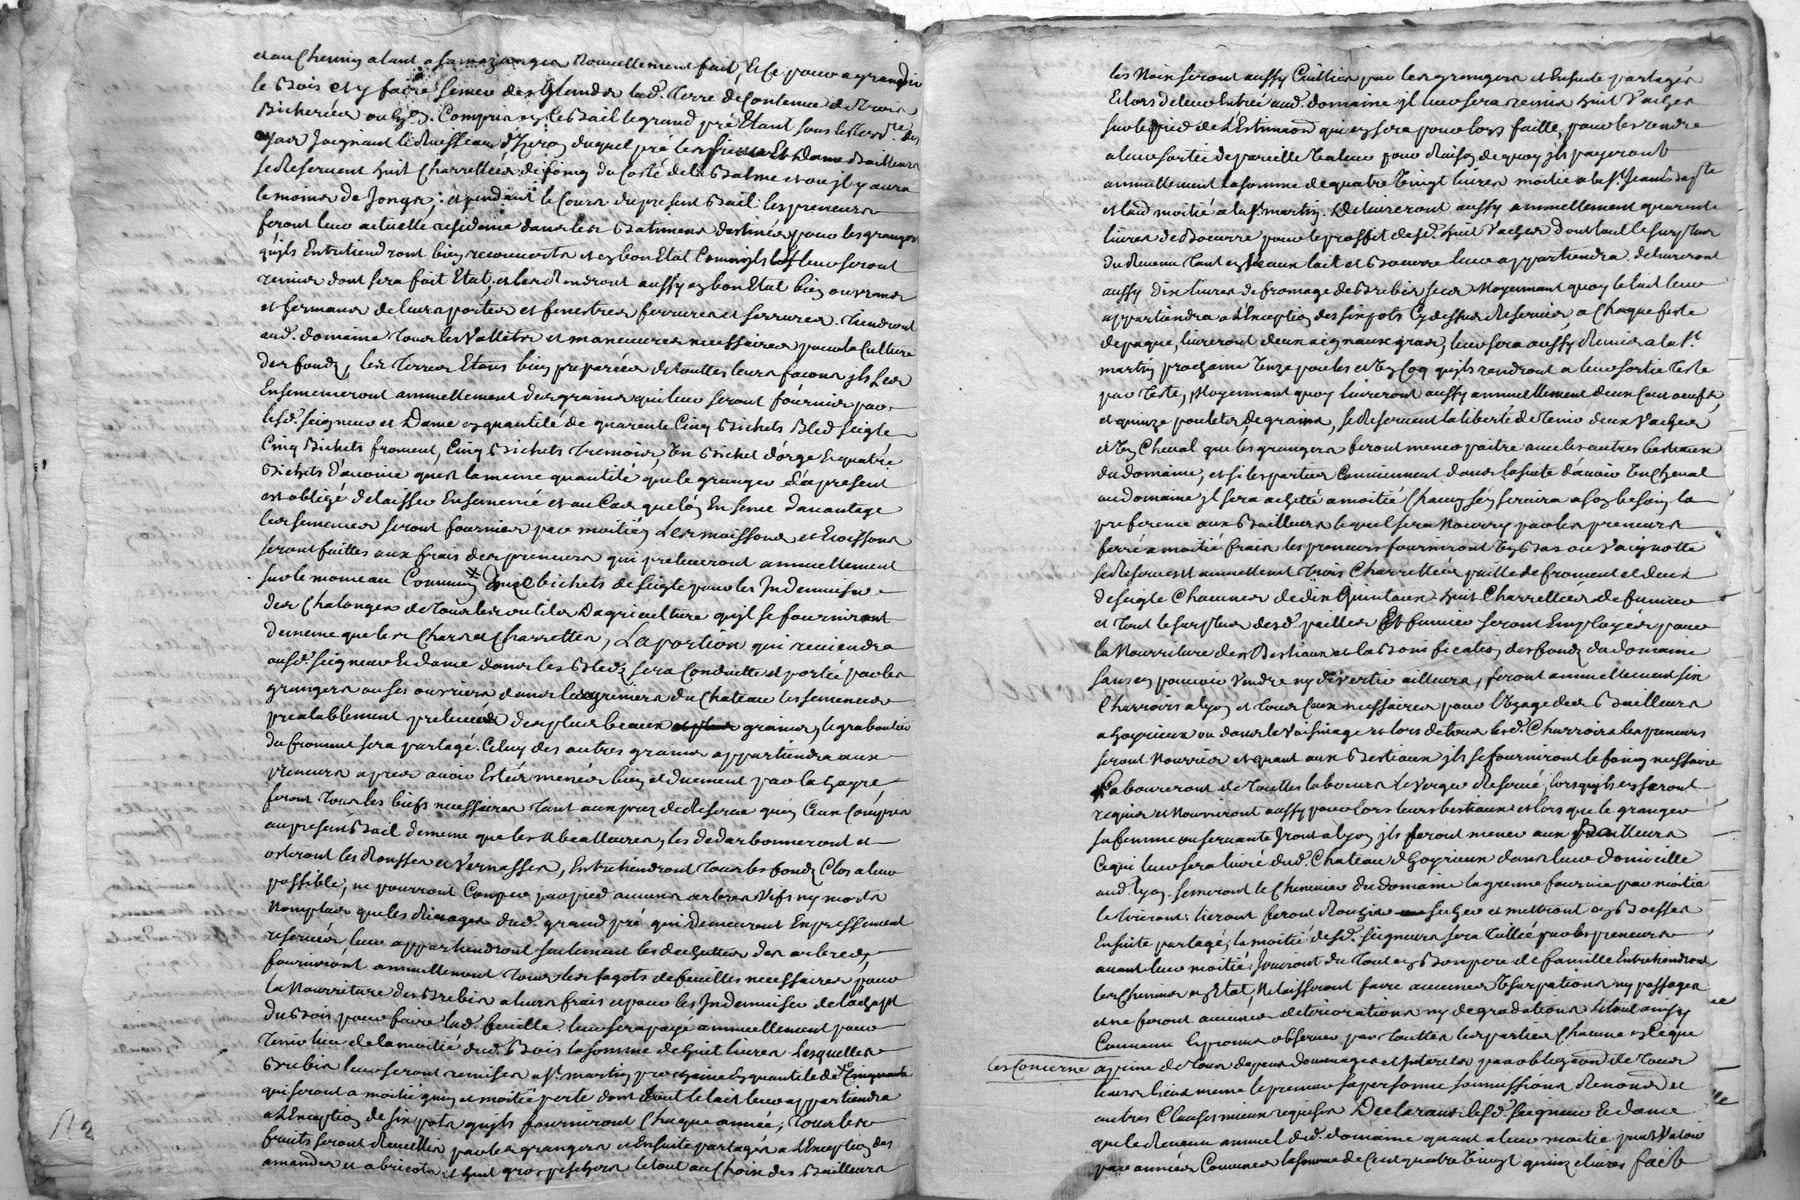 et au chemin alant a Samazanges nouvellement fait, et ce pour agrandir
le bois et y faire semer des glands lad. terre de contenue de trois
bicherées ou Compris es led. bail le grand pré Etant sous
joignant le Ruisseau duquel pré lesd. sieur et Dame Bailleurs
se Reservent huit Charrettées de foing du Costé de la Balme et ou il y aura
le moins de Joncs; et pendant le Cours du present bail les preneurs
feront leur actuelle residence dans les batimens destinés pour les grangers
qu'ils Entretiendront bien recouverts et en bon Etat Comm'ils leur seront
remis dont sera fait Etat; et les Rendront aussy en bon Etat bien ouvrants
et fermans de leurs portes et fenestres ferrures et serrures. Tiendront
aud. domaine tous les Vallets et maneuvres necessaires pour la Culture
des fonds, les Terres Etans bien preparées de touttes leurs façons ils Les
Ensemenceront annuellement des grains qui leur seront fournis par
lesd. seigneur et Dame en quantité de quarente Cinq bichets Bled seigle
Cinq bichets froment, Cinq bichets Tremois, un bichet d'orge et quatre
bichets d'avoine quest la meme quantité que le granger d'apresent
est obligé de laisser Ensemencé et au Cas que l'on En seme davantage
les semences seront fournies par moitié, Les moissons et
seront faittes aux frais des preneurs qui preleveront annuellement
sur le monceau Commun bichets de seigle pour les Indemniser
des Chalonges de tous les outils d'agriculture qu'il se fourniront
de meme que les Chars et Charrettes, La portion qui reviendra
ausd. seigneur et dame dans les Bleds sera Conduitte et portée par les
grangers ou ses ouvriers dans les greniers du Chateau les semences
prealablement prelevées des plus beaux grains, le
du froment sera partagé. Celuy des autres grains appartiendra aux
preneurs apres avoir Esté menés bien et duement par la
feront tous les biefs necessaires tant aux prez de Reserve qu'en Ceux Compris
au present Bail de meme que les les dedarbonneront et
osteront les Ronsses et Vernasses, Entretiendront tous les fonds Clos a leur
possible, ne pourront Couper par pied aucuns arbres vifs ny morts
Non plus que les Rivages dud. grand pré qui Demeurent Expressement
reservés, leur appartiendront seulement les des arbres,
fourniront annuellement tous les fagots de feuilles necessaires pour
la Nourriture des Brebis a leurs frais et pour les Indemniser de
du bois pour faire lad. feuille leur sera payé annuellement pour
tenir lieu de la moitié dud. Bois la somme de huit livres Lesquelles
Brebis leur seront remises a St. martin prochaine en quantité de Cinquante
qui seront a moitié gain et moitié perte dont tout le lait leur appartiendra
a l'Exception de six pots qu'ils fourniront Chaque année; Tous les
fruits seront Recueillis par les grangers et Ensuite partagés a l'Exception des
amandes et abricots et huit gros peschers le tout au Choix des Bailleurs
les Noix seront aussy Cuillies par les grangers et Ensuite partagés
Et lors de leur Entrée aud. domaine il leur sera remis huit Vaches
sur le pied de l'Estimaon. qui en sera pour lors faitte, pour les rendre
a leur sortie de pareille Valeur pour Raison de quoy ils payeront
annuellement la somme de quatre vingt livres moitié a la St. Jean Bapte
et lad. moitié a la St. martin. Delivreront aussy annuellement quarente
livres de Boeurre pour le proffit desd. huit Vaches dont tout le surplus
du Revenu tant en Veaux lait et Boeurre leur appartiendra. delivreront
aussy dix livres de fromage de Brebis secs Moyennant quoy le lait leur
appartiendra a l'Exception des six pots Cy dessus Reservés, a Chaque feste
de paque, livreront deux aigneaux gras, leur sera aussy Remis a la St.
martin prochaine onze poules et un Coq qu'ils rendront a leur sortie teste
par teste, Moyennant quoy livreront aussy annuellement deux Cent oeufs,
et quinze poulets de grains, se Reservent la liberté de tenir deux Vaches
et un Cheval que les grangers feront mener paitre avec les autres bestiaux
du domaine, et si les parties Conviennent dans la suite d'avoir un Cheval
au domaine il sera achetté a moitié Chacun s'en servira a son besoin la
preference aux Bailleurs lequel sera Nourry par les preneurs
ferré a moitié frais les preneurs fourniront un Bas ou
se Reservent annuellement trois Charrettées paille de froment et deux
de seigle Chacunes de dix Quintaux huit Charrettées de fumier
et tout le surplus desd. pailles Et fumier seront Employés pour
la Nourriture des Bestiaux et la Bonification des fonds du domaine
sans en pouvoir Vendre ny divertir ailleurs, feront annuellement six
Charrois a Lyon et tous Ceux necessaires pour l'usage des Bailleurs
a Goyrieux ou dans le Voisinage et lors de tous lesd. Charrois les preneurs
seront Nourris et quant aux Bestiaux ils se fourniront le foing necessaire
Laboureront de touttes laboeurs le Verger Reservé, lorsqu'ils en seront
requis et Nourriront aussy pour lors leurs bestiaux et lors que le granger
sa femme ou servante Iront a Lyon ils feront mener aux Bailleurs
Ce qui leur sera livré dud. Chateau d'Goyrieux dans leur domicille
aud. Lyon. semeront le Chenevier du domaine la greme fournie par moitié
le feront Rouzir secher et mettront en
Ensuite partagé, la moitié desd. seigneurs sera Tillée par les preneurs
avant leur moitié Jouiront du tout en Bon pere de famille Entretiendront
les Chemins en Etat, Ne laisseront faire aucunes Usurpations ny passages
et ne feront aucunes deteriorations ny degradations le tout ainsy
Convenu Et promis observer par touttes les parties Chacune en Ce que
les Concerne a peine de tous depens dommages et Interets par obligaon. de tous
leurs biens meme le preneur sa personne soumissions Renonc. et
autres Clauses mieux requises Declarant lesd. seigneur et dame
que le Revenu annuel dud. domaine quant a leur moitié peut Valoir
par année Commune la somme de Cent quatre vingt quinze livres fait